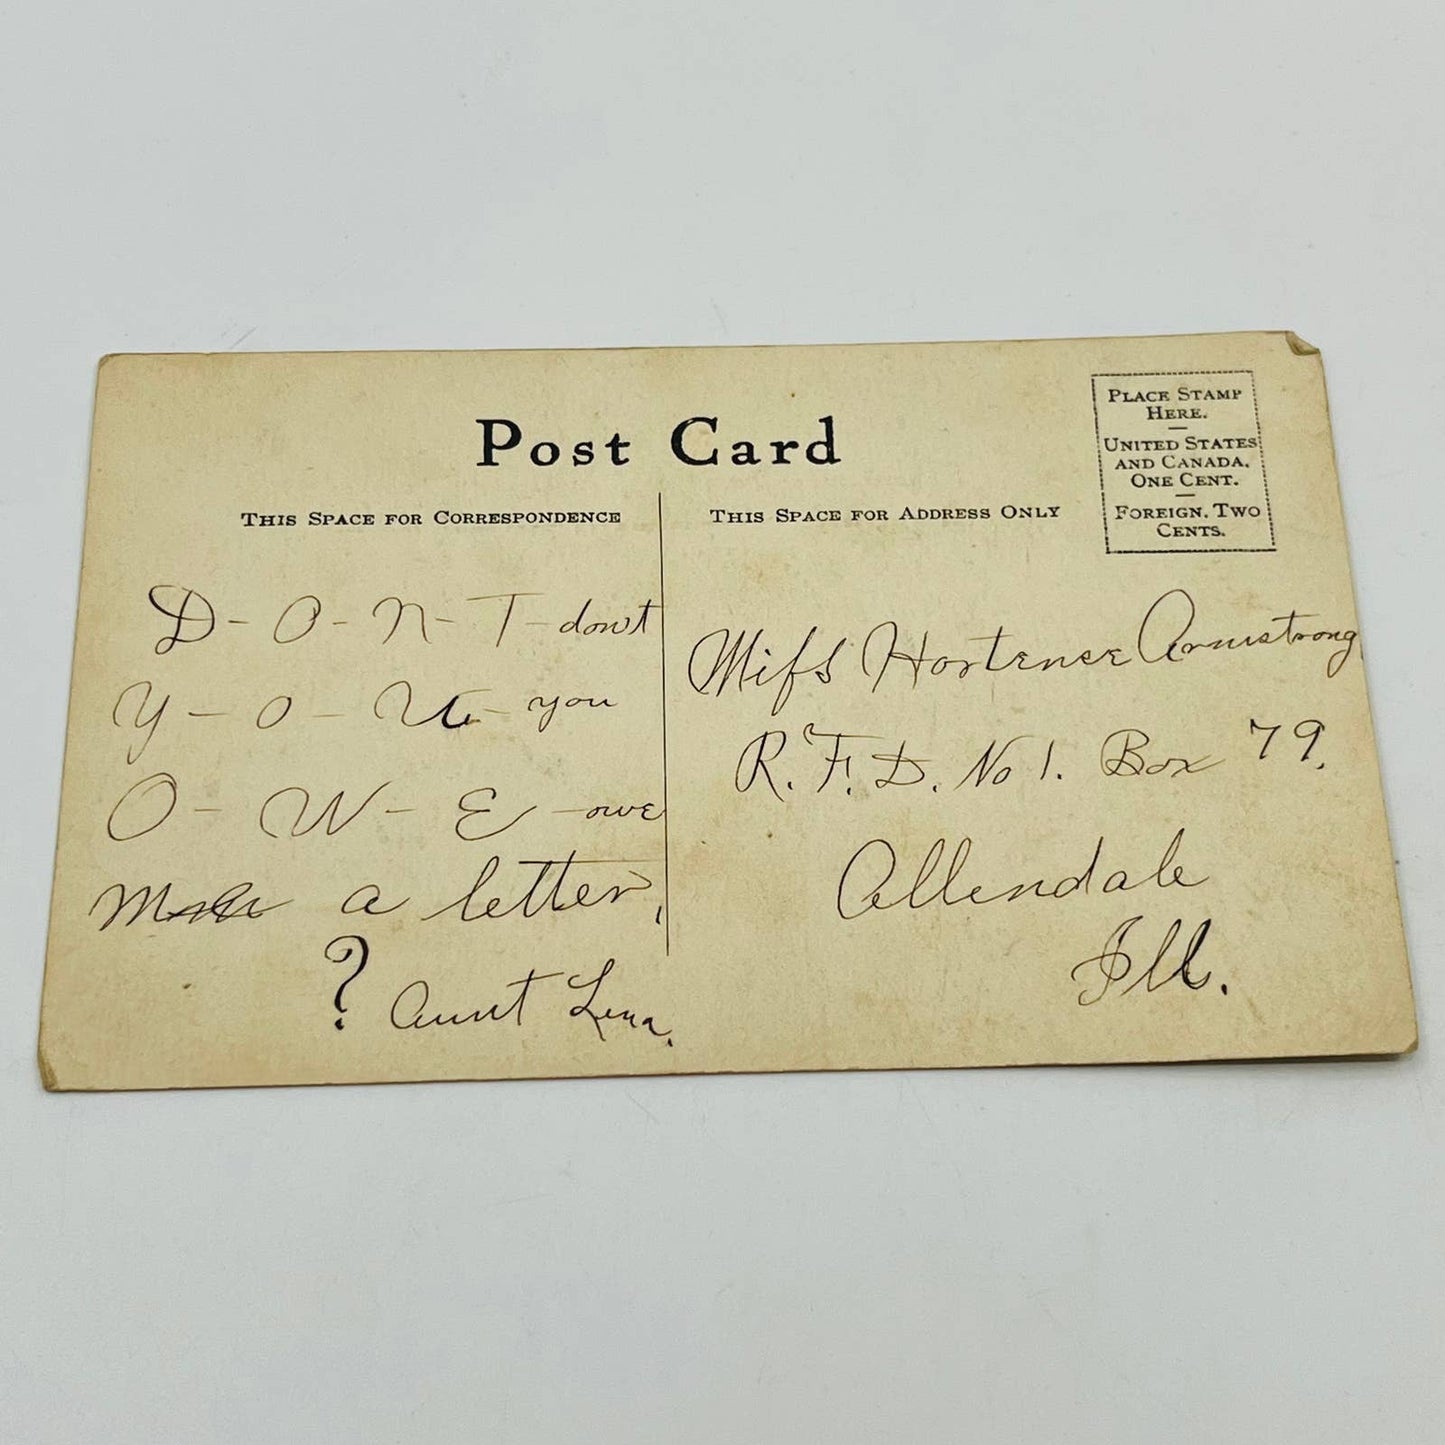 Post Card
THIS SPACE FOR CORRESPONDENCE
D- O- N- T- don't
Y- O- U- you
O- W- E- owe
a letter,
? Aunt Lena.
THIS SPACE FOR ADDRESS ONLY
PLACE STAMP
HERE.
UNITED STATES
AND CANADA.
ONE CENT.
FOREIGN. TWO
CENTS.
Miss Hortense Armstrong
R.F.D. No 1. Box 79.
Allendale
Ill.